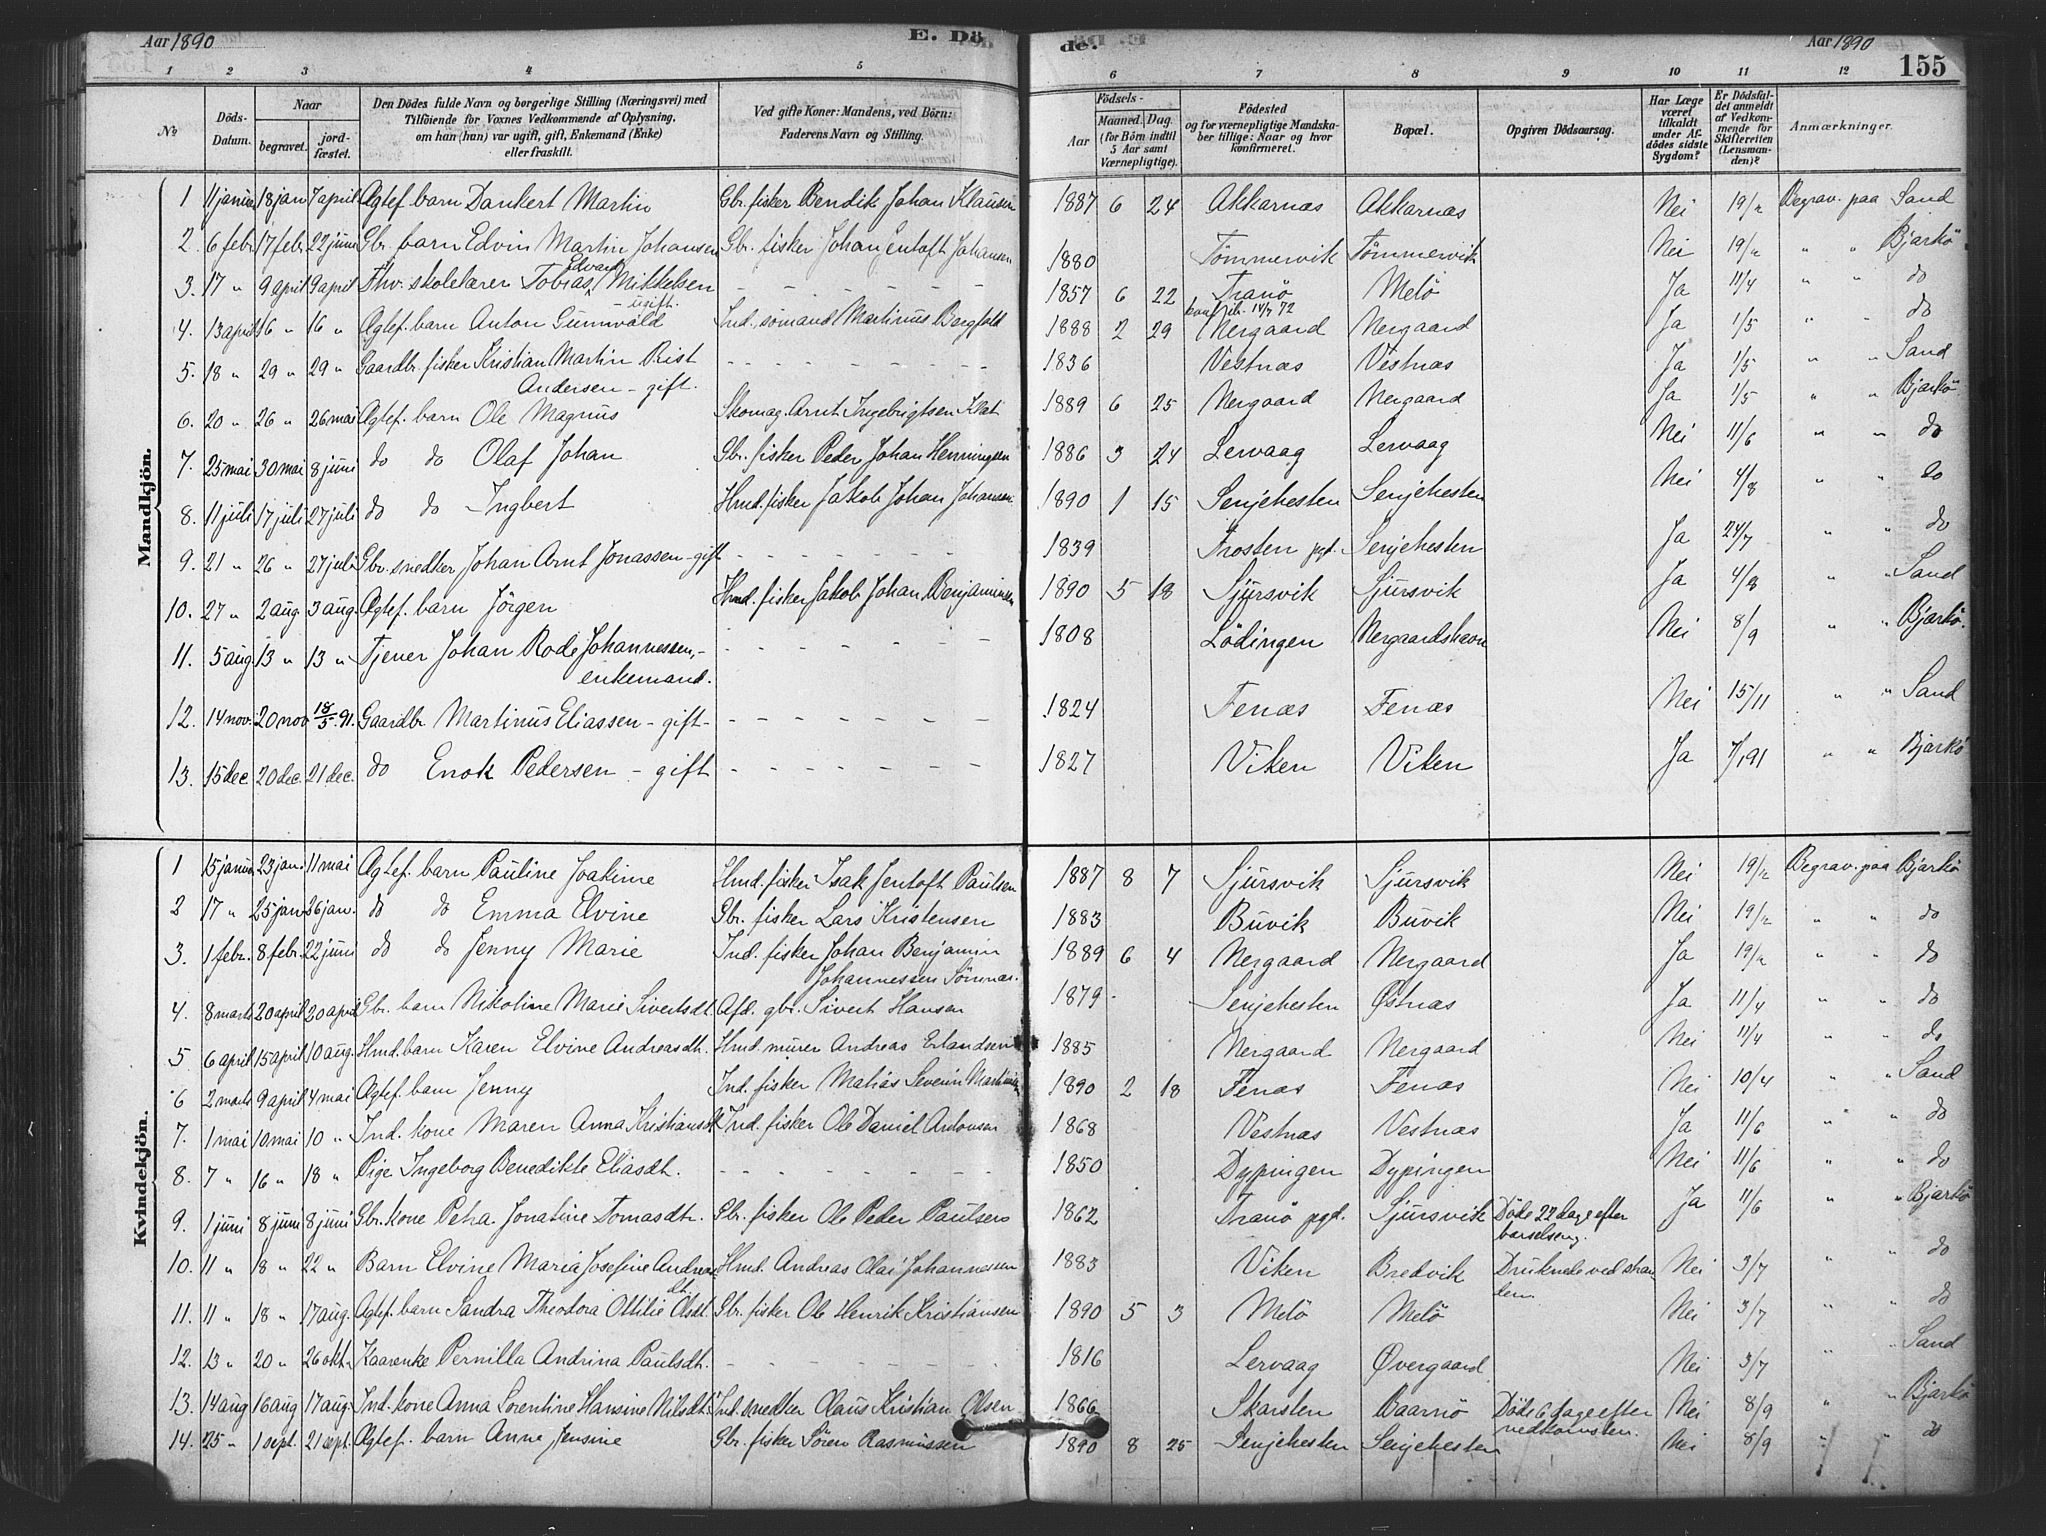 Aar 1890 E. Dö de. Aar 1890 155
1 2 3 4 5 6 7 8 9 10 11 12
No Döds-Datum. Naar begravet. jordfæstet. Den Dödes fulde Navn og borgerlige Stilling (Næringsvei) med Tilföiende for Voxnes Vedkommende af Oplysning, om han (hun) var ugift, gift, Enkemand (Enke) eller fraskilt. Ved gifte Koner: Mandens, ved Börn: Faderens Navn og Stilling. Födsels- Aar Maaned. Dag. (for Börn indtil 5 Aar samt Værnepligtige). Födested og for værnepligtige Mandskaber tillige: Naar og hvor konfirmeret. Bopæl. Opgiven Dödsaarsag. Har Læge været tilkaldt under Afdödes sidste Sygdom? Er Dödsfaldet anmeldt af Vedkommende for Skifteretten (Lensmanden)? Anmærkninger.
Mandkjön.
1 11 januar 18 jan 7 april Ægtef. barn Dankert Martin Gbr. fisker Bendik Johan Klausen 1887 6 24 Akkarnæs Akkarnæs Nei 19/2 Begrav. paa Sand
2. 6 febr. 17 febr. 22 juni Gbr. barn Edvin Martin Johansen Gbr. fisker Johan Jentoft Johansen 1880 Tömmervik Tömmervik Nei 19/2 " " Bjarkö
3. 17 " 9 april 9 april Fhv. skolelærer Tobias Edvard Mikkelsen - - - - - - 1857 6 22 Tranö Melö Ja 11/4 " " do
- ugift. 14/7 72
4. 13 april 16 " 16 " Ægtef. barn Anton Gunvald Ind. sömand Martinus Bergfald 1888 2 29 Nergaard Nergaard Ja 1/5 " " do
5. 18 " 29 " 29 " Gaardbr. fisker Kristian Martin Rist - - - - - - 1836 Vestnæs Vestnæs Ja 1/5 " " Sand
Andersen - gift.
6. 20 " 26 " 26 mai Ægtef. barn Ole Magnus Skomag. Arnt Ingebrigtsen Klæt 1889 6 25 Nergaard Nergaard Ja 1/5 " " Bjarkö
7. 25 mai 30 mai 8 juni do do Olaf Johan Gbr. fisker Peder Johan Henningsen 1886 3 24 Lervaag Lervaag Nei 11/6 " " do
8. 11 juli 17 juli 27 juli do do Ingbert Hmd. fisker Jakob Johan Johansen 1890 1 15 Senjehesten Senjehesten Nei 4/8 " " do
9. 21 " 26 " 27 juli Gbr. snedker Johan Arnt Jonassen - gift - - - - - - 1839 Trosten pgd. Senjehesten Ja 24/7 " " do
10. 27 " 2 aug 3 aug. Ægtef. barn Jörgen Hmd. fisker Jakob Johan Benjaminsen 1890 5 18 Sjursvik Sjursvik Ja 4/8 " " Sand
11. 5 aug 13 " 13 " Tjener Johan Rode Johannessen, - - - - - - - 1808 Lödingen Nergaardshavn Nei 8/9 " " Bjarkö.
enkemand.
12. 14 nov. 20 nov 18/5 91. Gaardbr Martinus Eliassen - gift - - - - - - - 1824 Fenæs Fenæs Nei 15/11 " " Sand
13. 15 dec. 20 dec. 21 dec. do Enok Pedersen - gift - - - - - - 1827 Viken Viken Ja 7/1 91 " " Bjarkö
Kvindekjön.
1 15 januar 23 jan. 11 mai Ægtef. barn Pauline Joakime Hmd. fisker Isak Jentoft Paulsen 1887 8 7 Sjursvik Sjursvik Nei 19/2 Begrav. paa Bjarkö
2 17 " 25 jan 26 jan. do do Emma Elvine Gbr. fisker Lars Kristensen 1883 Buvik Buvik Nei 19/2 " " do
3. 1 febr. 8 febr. 22 juni do do Jenny Marie Ind. fisker Johan Benjamin 1889 6 4 Nergaard Nergaard Ja 19/2 " " do
Johannessen Sömnæs.
4. 8 marts 20 april 20 april Gbr. barn Nikoline Marie Sivertsdt. Afd. gbr. Sivert Hansen 1879 Senjehesten Østnæs Ja 11/4 " " do
5 6 april 15 april 10 aug. Hmd. barn Karen Elvine Andreasdt. Hmd. murer Andreas Erlandsen 1885 Nergaard Nergaard Nei 11/4 " " do
6 2 marts 9 april 4 mai Ægtef. barn Jenny Ind. fisker Matias Severin 1890 2 18 Fenæs Fenæs Nei 10/4 " " Sand
7. 1 mai 10 mai 10 " Ind. kone Maren Anna Kristiansdt. Ind. fisker Ole Daniel Antonsen 1868 Vestnæs Vestnæs Ja 11/6 " " do
8. 7 " 16 " 18 " Pige Ingeborg Benedikte Eliasdt. - - - - - - 1850 Dypingen Dypingen Nei 11/6 " " do
9. 1 juni 8 juni 8 juni Gbr. kone Petra Jonatine Tomasdtr. Gbr. fisker Ole Peder Paulsen 1862 Tranö pgd. Sjursvik Döde 22 dage efter Ja 11/6 " " Bjarkö
barselseng.
10. 11 " 18 " 22 " Barn Elvine Maria Josefine Andreasdt. Hmd. Andreas Olai Johannessen 1883 Viken Bredvik Druknede ved stran Nei 3/7 " " do
den.
11. 11 " 18 " 17 aug. Ægtef. barn Sandra Theodora Ottilie Olsdt. Gbr. fisker Ole Henrik Kristiansen 1890 5 3 Melö Melö Nei 3/7 " " do
12. 13 " 20 " 26 okt. Kaarenke Pernilla Andrina Paulsdt. - - - - - - 1816 Lervaag Øvergaard Nei 3/7 " " Sand
13. 14 aug 16 aug 17 aug. Ind. kone Anna Lorentine Hansine Nilsdt. Ind. snedker Olaus Kristian Olsen 1866 Skarsten Baarnö Döde 6 dage efter Nei 8/9 " " Bjarkö
nedkomsten.
14. 25 " 1 sept. 21 sept. Ægtef. barn Anne Jensine Gbr. fisker Sören Rasmussen 1890 8 25 Senjehesten Senjehesten Nei 8/9 " " do